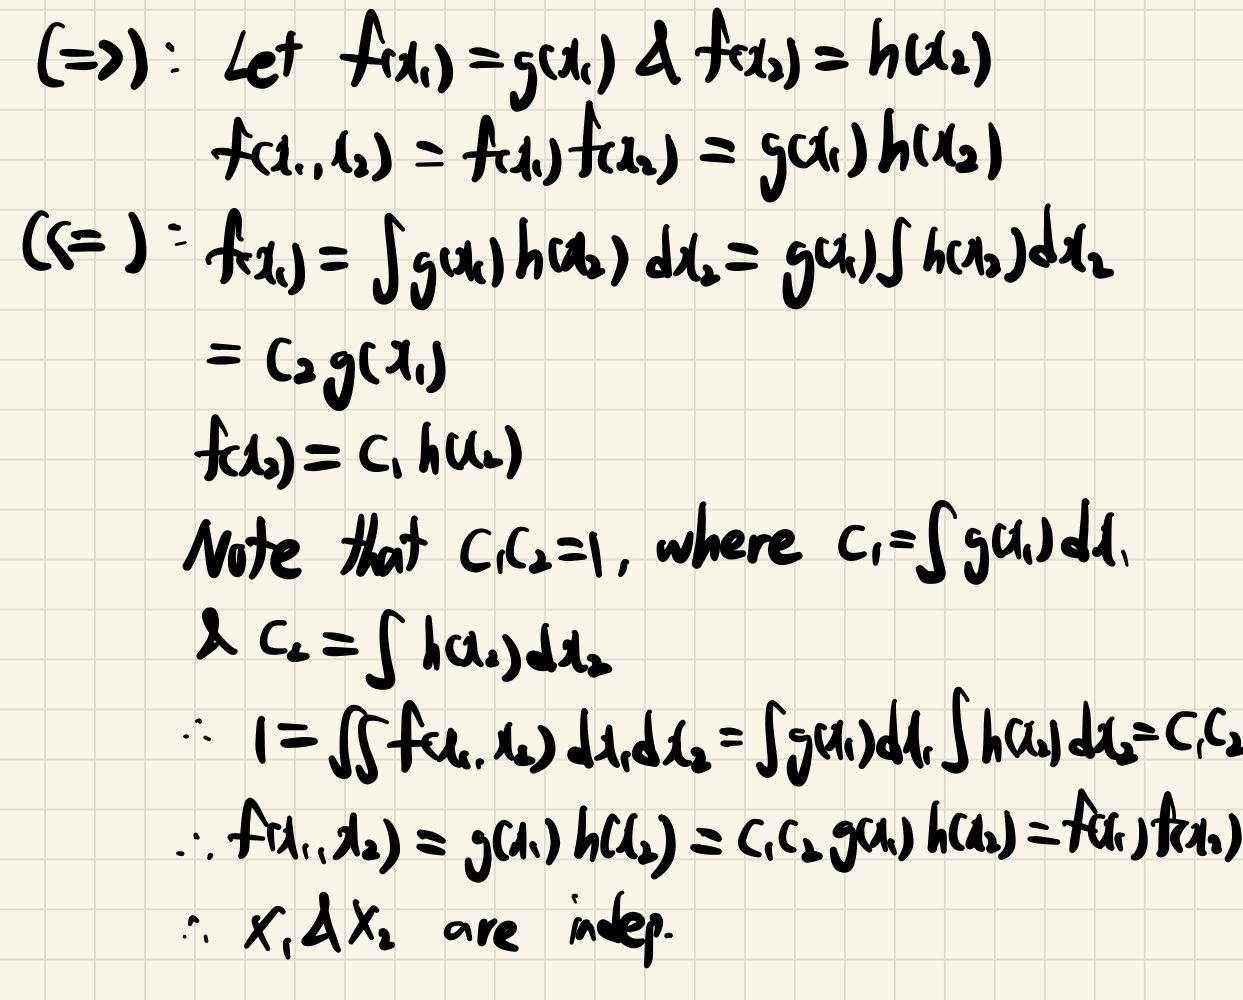 (=>): Let f(x₁) = g(x₁) & f(x₂) = h(x₂)
f(x₁, x₂) = f(x₁) f(x₂) = g(x₁) h(x₂)
(<=): f(x₁) = ∫ g(x₁) h(x₂) dx₂ = g(x₁) ∫ h(x₂) dx₂
= C₂ g(x₁)
f(x₂) = C₁ h(x₂)
Note that C₁C₂ = 1, where C₁ = ∫ g(x₁) dx₁
& C₂ = ∫ h(x₂) dx₂
∵ 1 = ∬ f(x₁, x₂) dx₁ dx₂ = ∫ g(x₁) dx₁ ∫ h(x₂) dx₂ = C₁C₂
∴ f(x₁, x₂) = g(x₁) h(x₂) = C₁C₂ g(x₁) h(x₂) = f(x₁) f(x₂)
∴ X₁ & X₂ are indep.